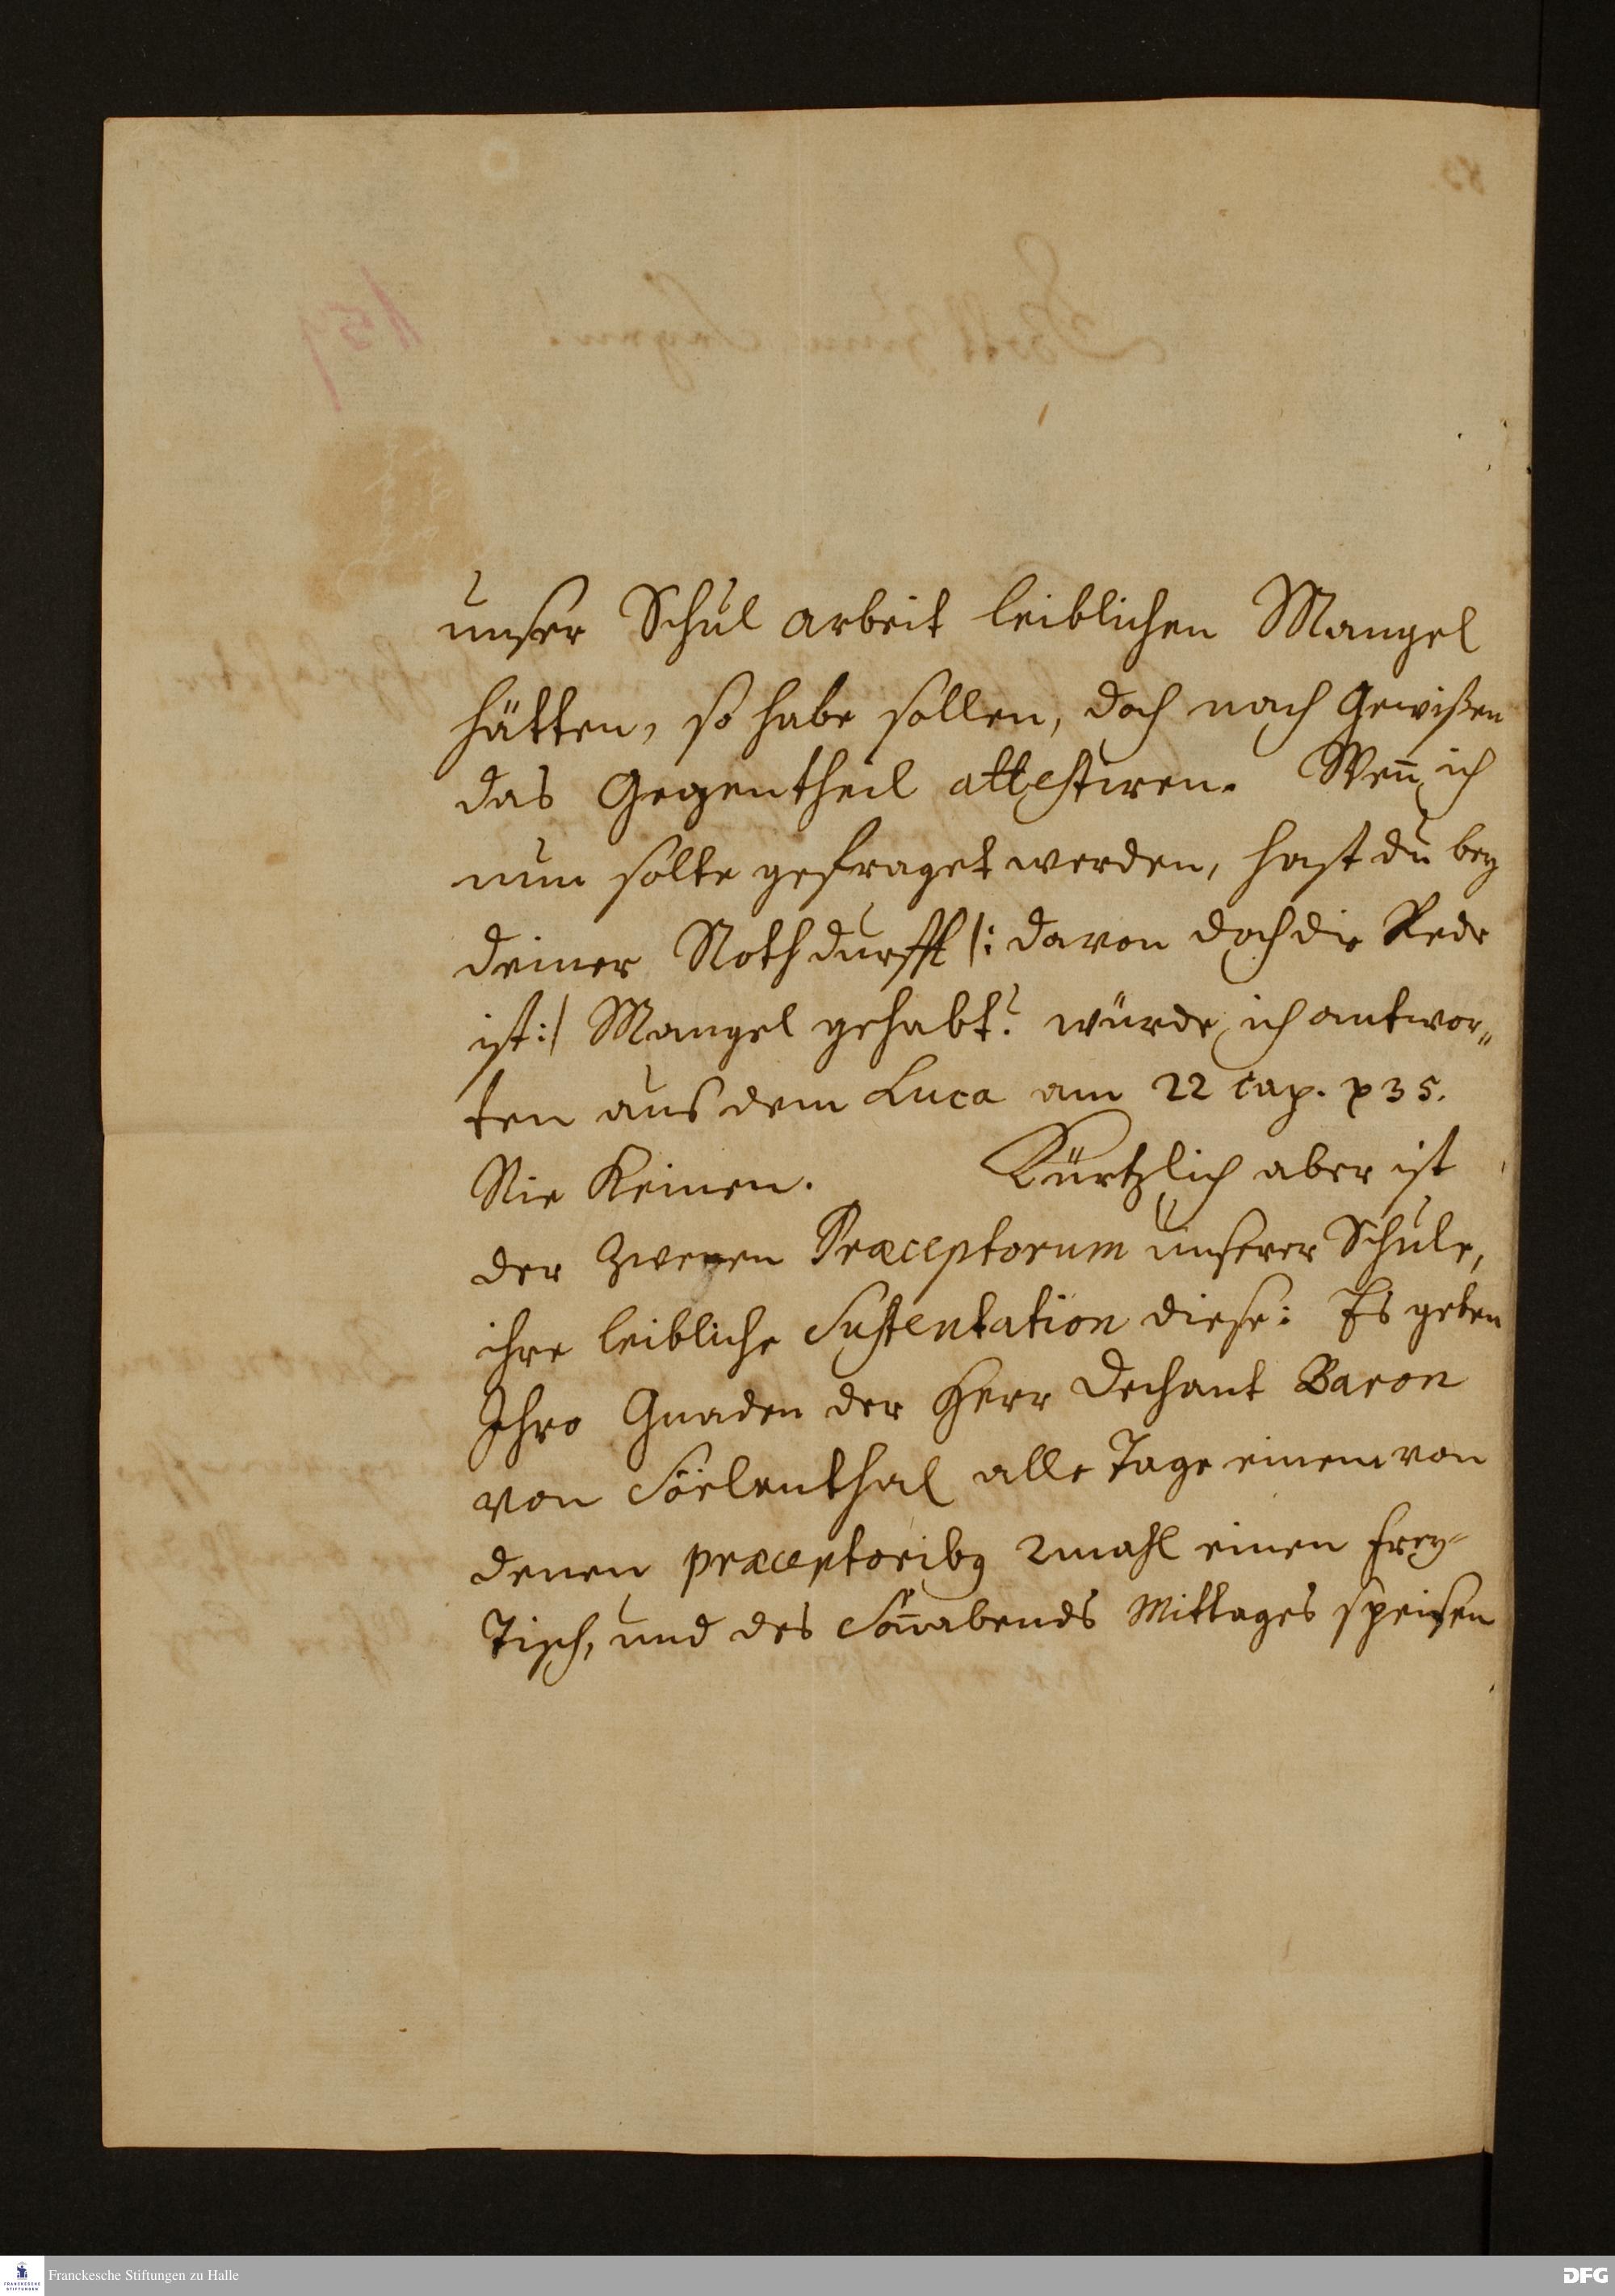 unser Schul arbeit leiblichen Mangel
hätten, so habe sollen, doch nach Gewißen
das Gegentheil attestiren. Wen̄ ich
nun solte gefraget werden, hast du bey
deiner Nothdurfft /: davon doch die Rede
ist :/ Mangel gehabt? würde ich antwor„
ten aus dem Luca am 22 cap. p 35.
Nie Keinen. Kürtzlich aber ist
der zweyen Præceptorum unserer Schule,
ihre leibliche Sustentation diese: Es geben
Ihro Gnaden der Herr Dechant Baron
von Söelenthal alle Tage einem von
denen præceptoribq 2mahl einen frey-
Tisch, und des Son̄abends Mittages speisen
Franckesche Stiftungen zu Halle
DFG